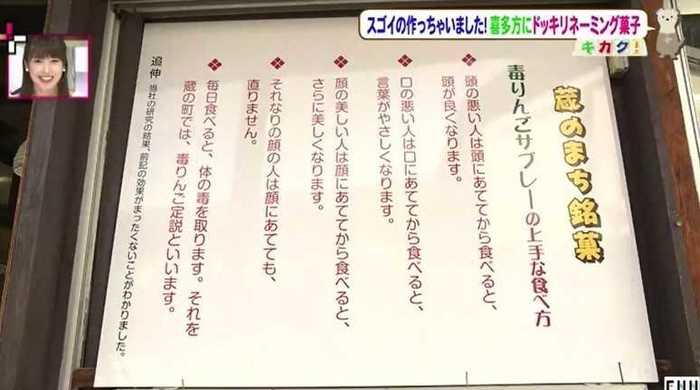 スゴイの作っちゃいました!喜多方にドッキリネーミング菓子
キカク!
蔵のまち銘菓
毒りんごサブレーの上手な食べ方
❖頭の悪い人は頭にあててから食べると、
頭が良くなります。
❖口の悪い人は口にあててから食べると、
言葉がやさしくなります。
❖顔の美しい人は顔にあててから食べると、
さらに美しくなります。
❖それなりの顔の人は顔にあてても、
直りません。
❖毎日食べると、体の毒を取ります。それを
蔵の町では、毒りんご定説といいます。
追伸 当社の研究の結果、前記の効果がまったくないことがわかりました。